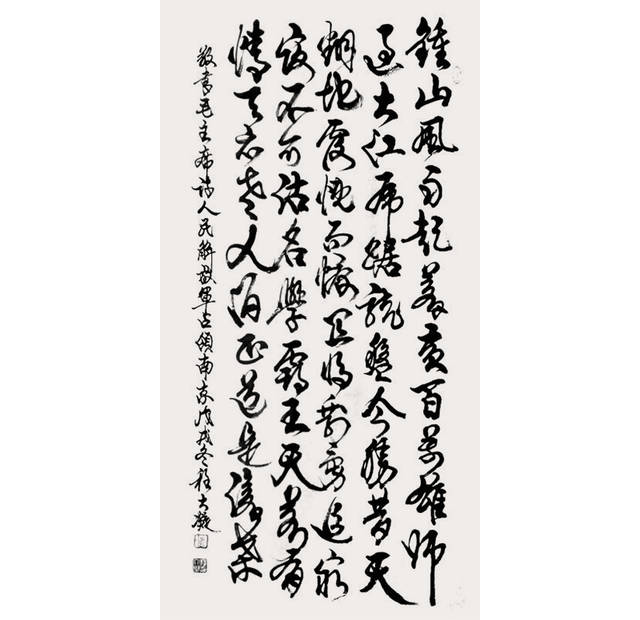 鍾山風雨起蒼黃百萬雄師
過大江虎踞龍盤今勝昔天
翻地覆慨而慷宜將剩勇追窮
寇不可沽名學霸王天若有
情天亦老人間正道是滄桑
敬書毛主席詩人民解放軍占領南京戊戌冬程大